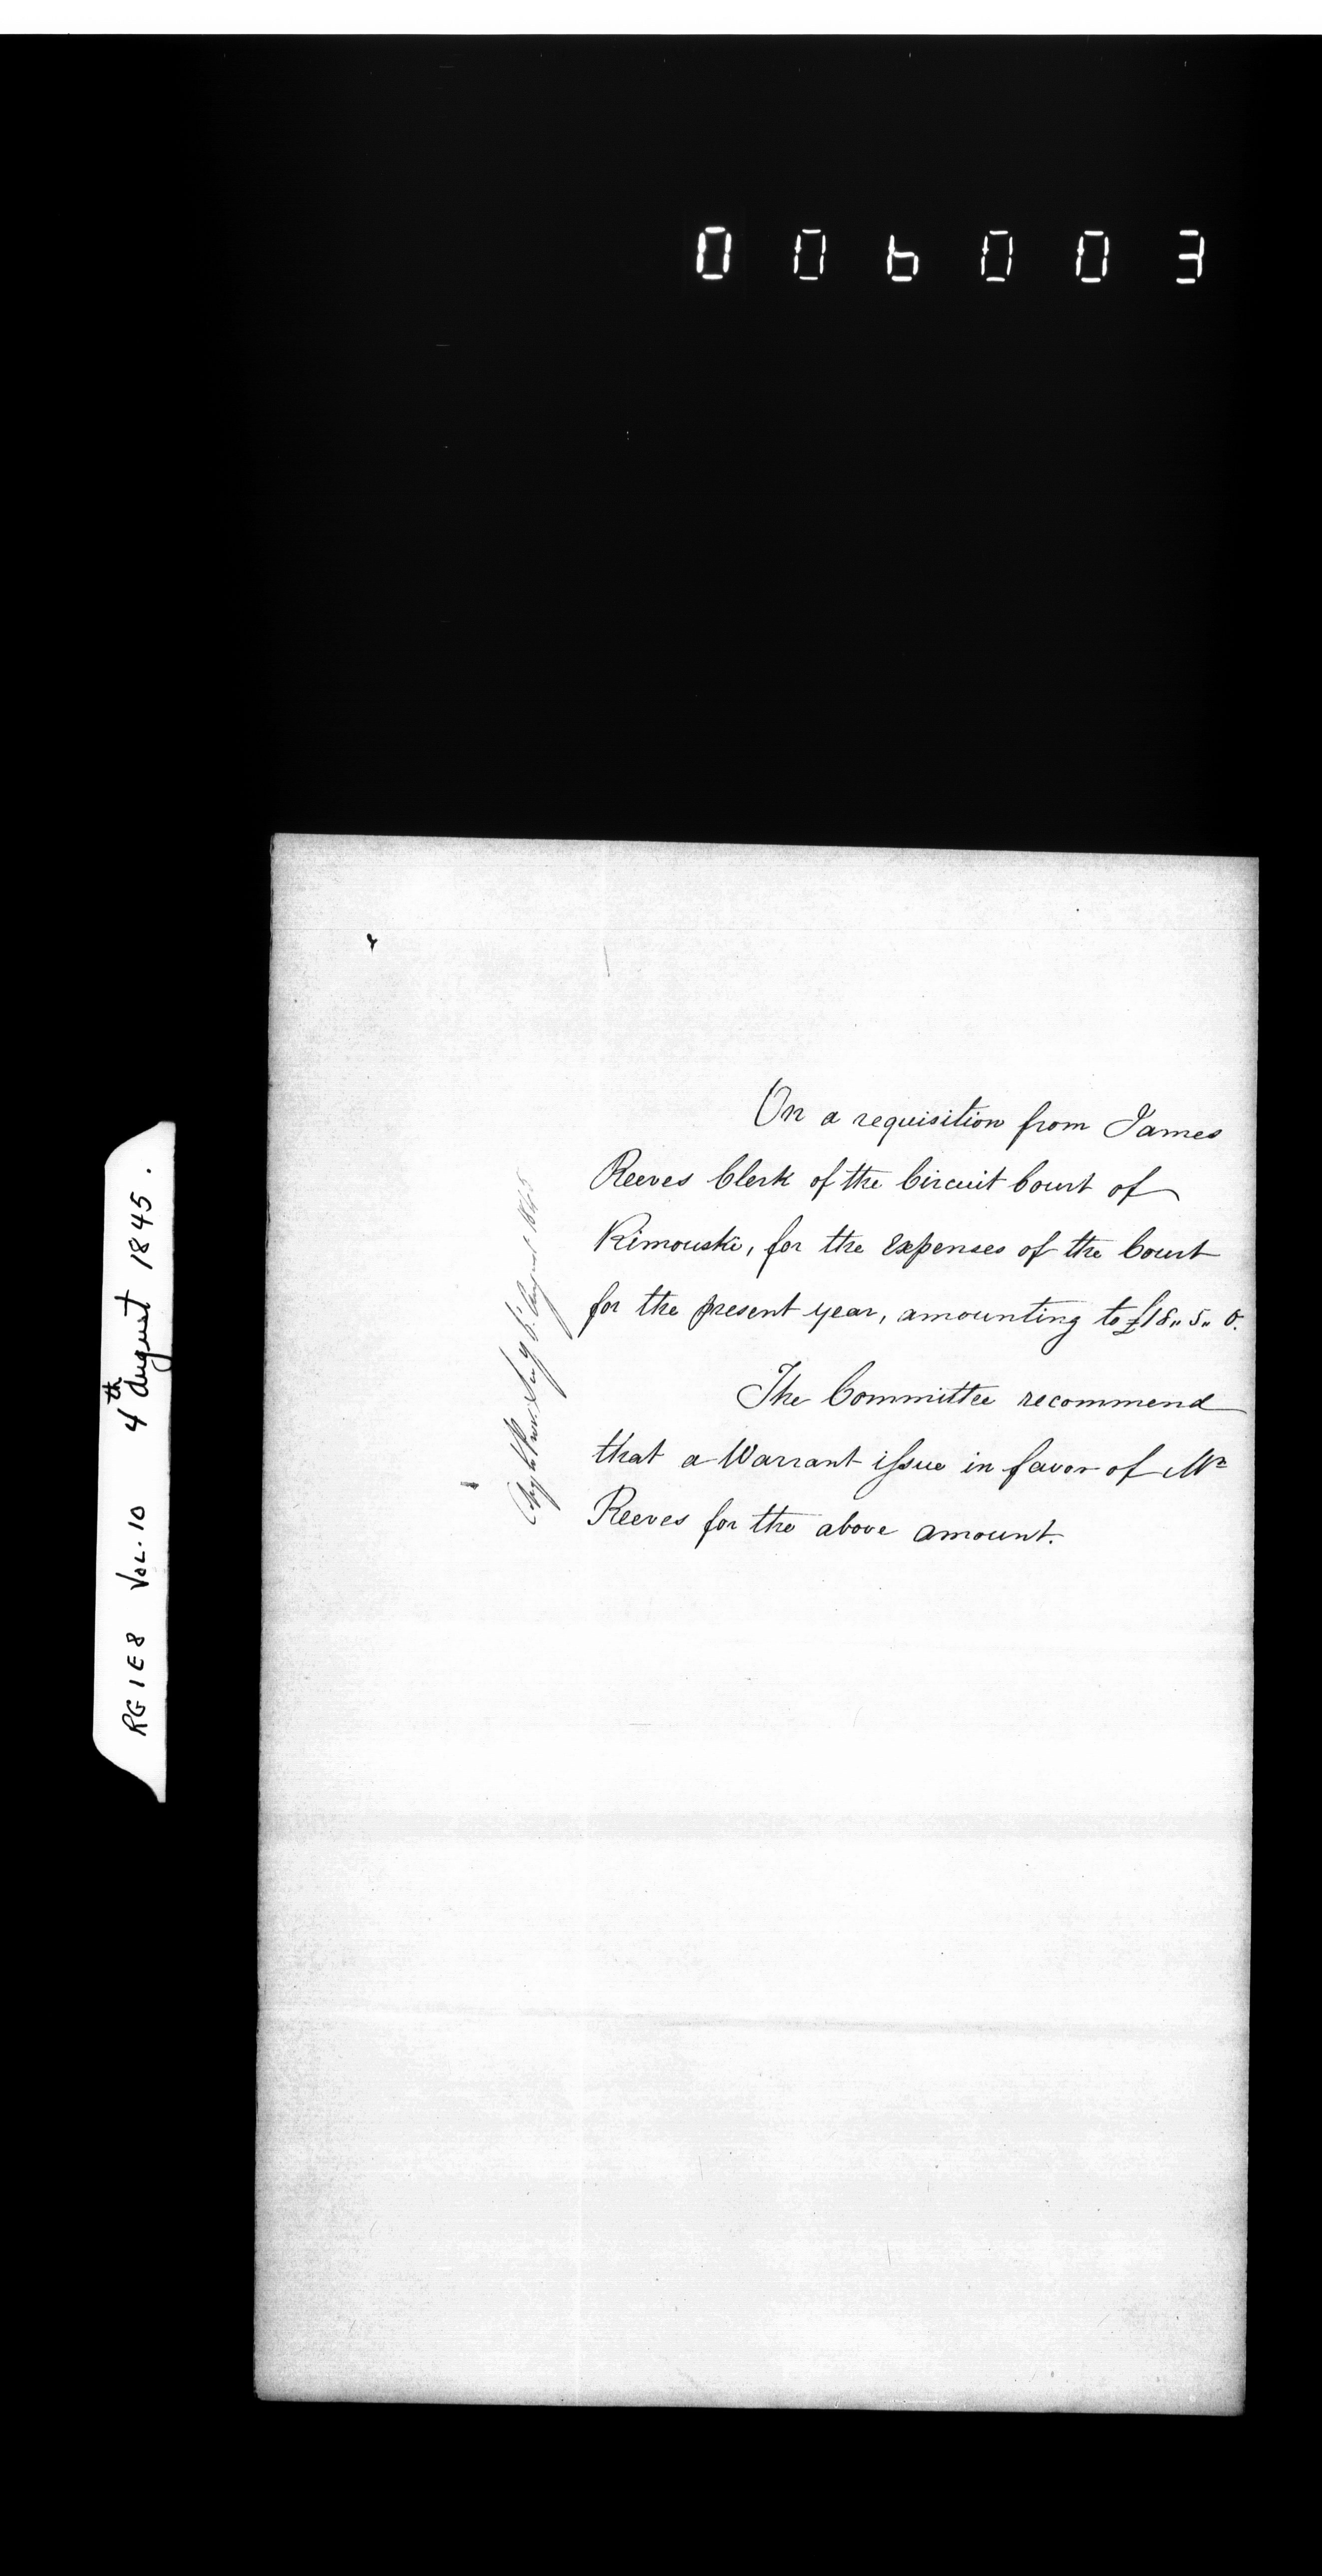 006003
RG 1 E 8 VOL. 10 4th August 1845.
On a requisition from James
Reeves Clerk of the Circuit Court of
Rimouski, for the expenses of the Court
for the present year, amounting to £18,, 5,, 0.
The Committee recommend
that a Warrant issue in favor of Mr
Reeves for the above amount.
August 1845